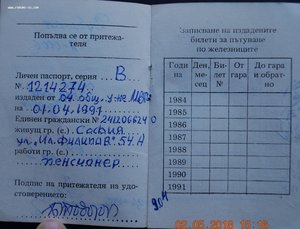 Попълва се от притежа-
теля
Личен паспорт, серия В
№ 1214274
издаден от 04 общ. у-ние МВР
на 01.04.1997
Единен граждански №
живущ гр. (с.) София
работи гр. (с.)
пенсионер
Подпис на притежателя на удо-
стоверението:
Записване на издадените
билети за пътуване
по железниците
Годи
на
Ден,
ме-
сец
Би-
лет
№
От
гара
До гара
и обрат-
но
1984
1985
1986
1987
1988
1989
1990
1991
904